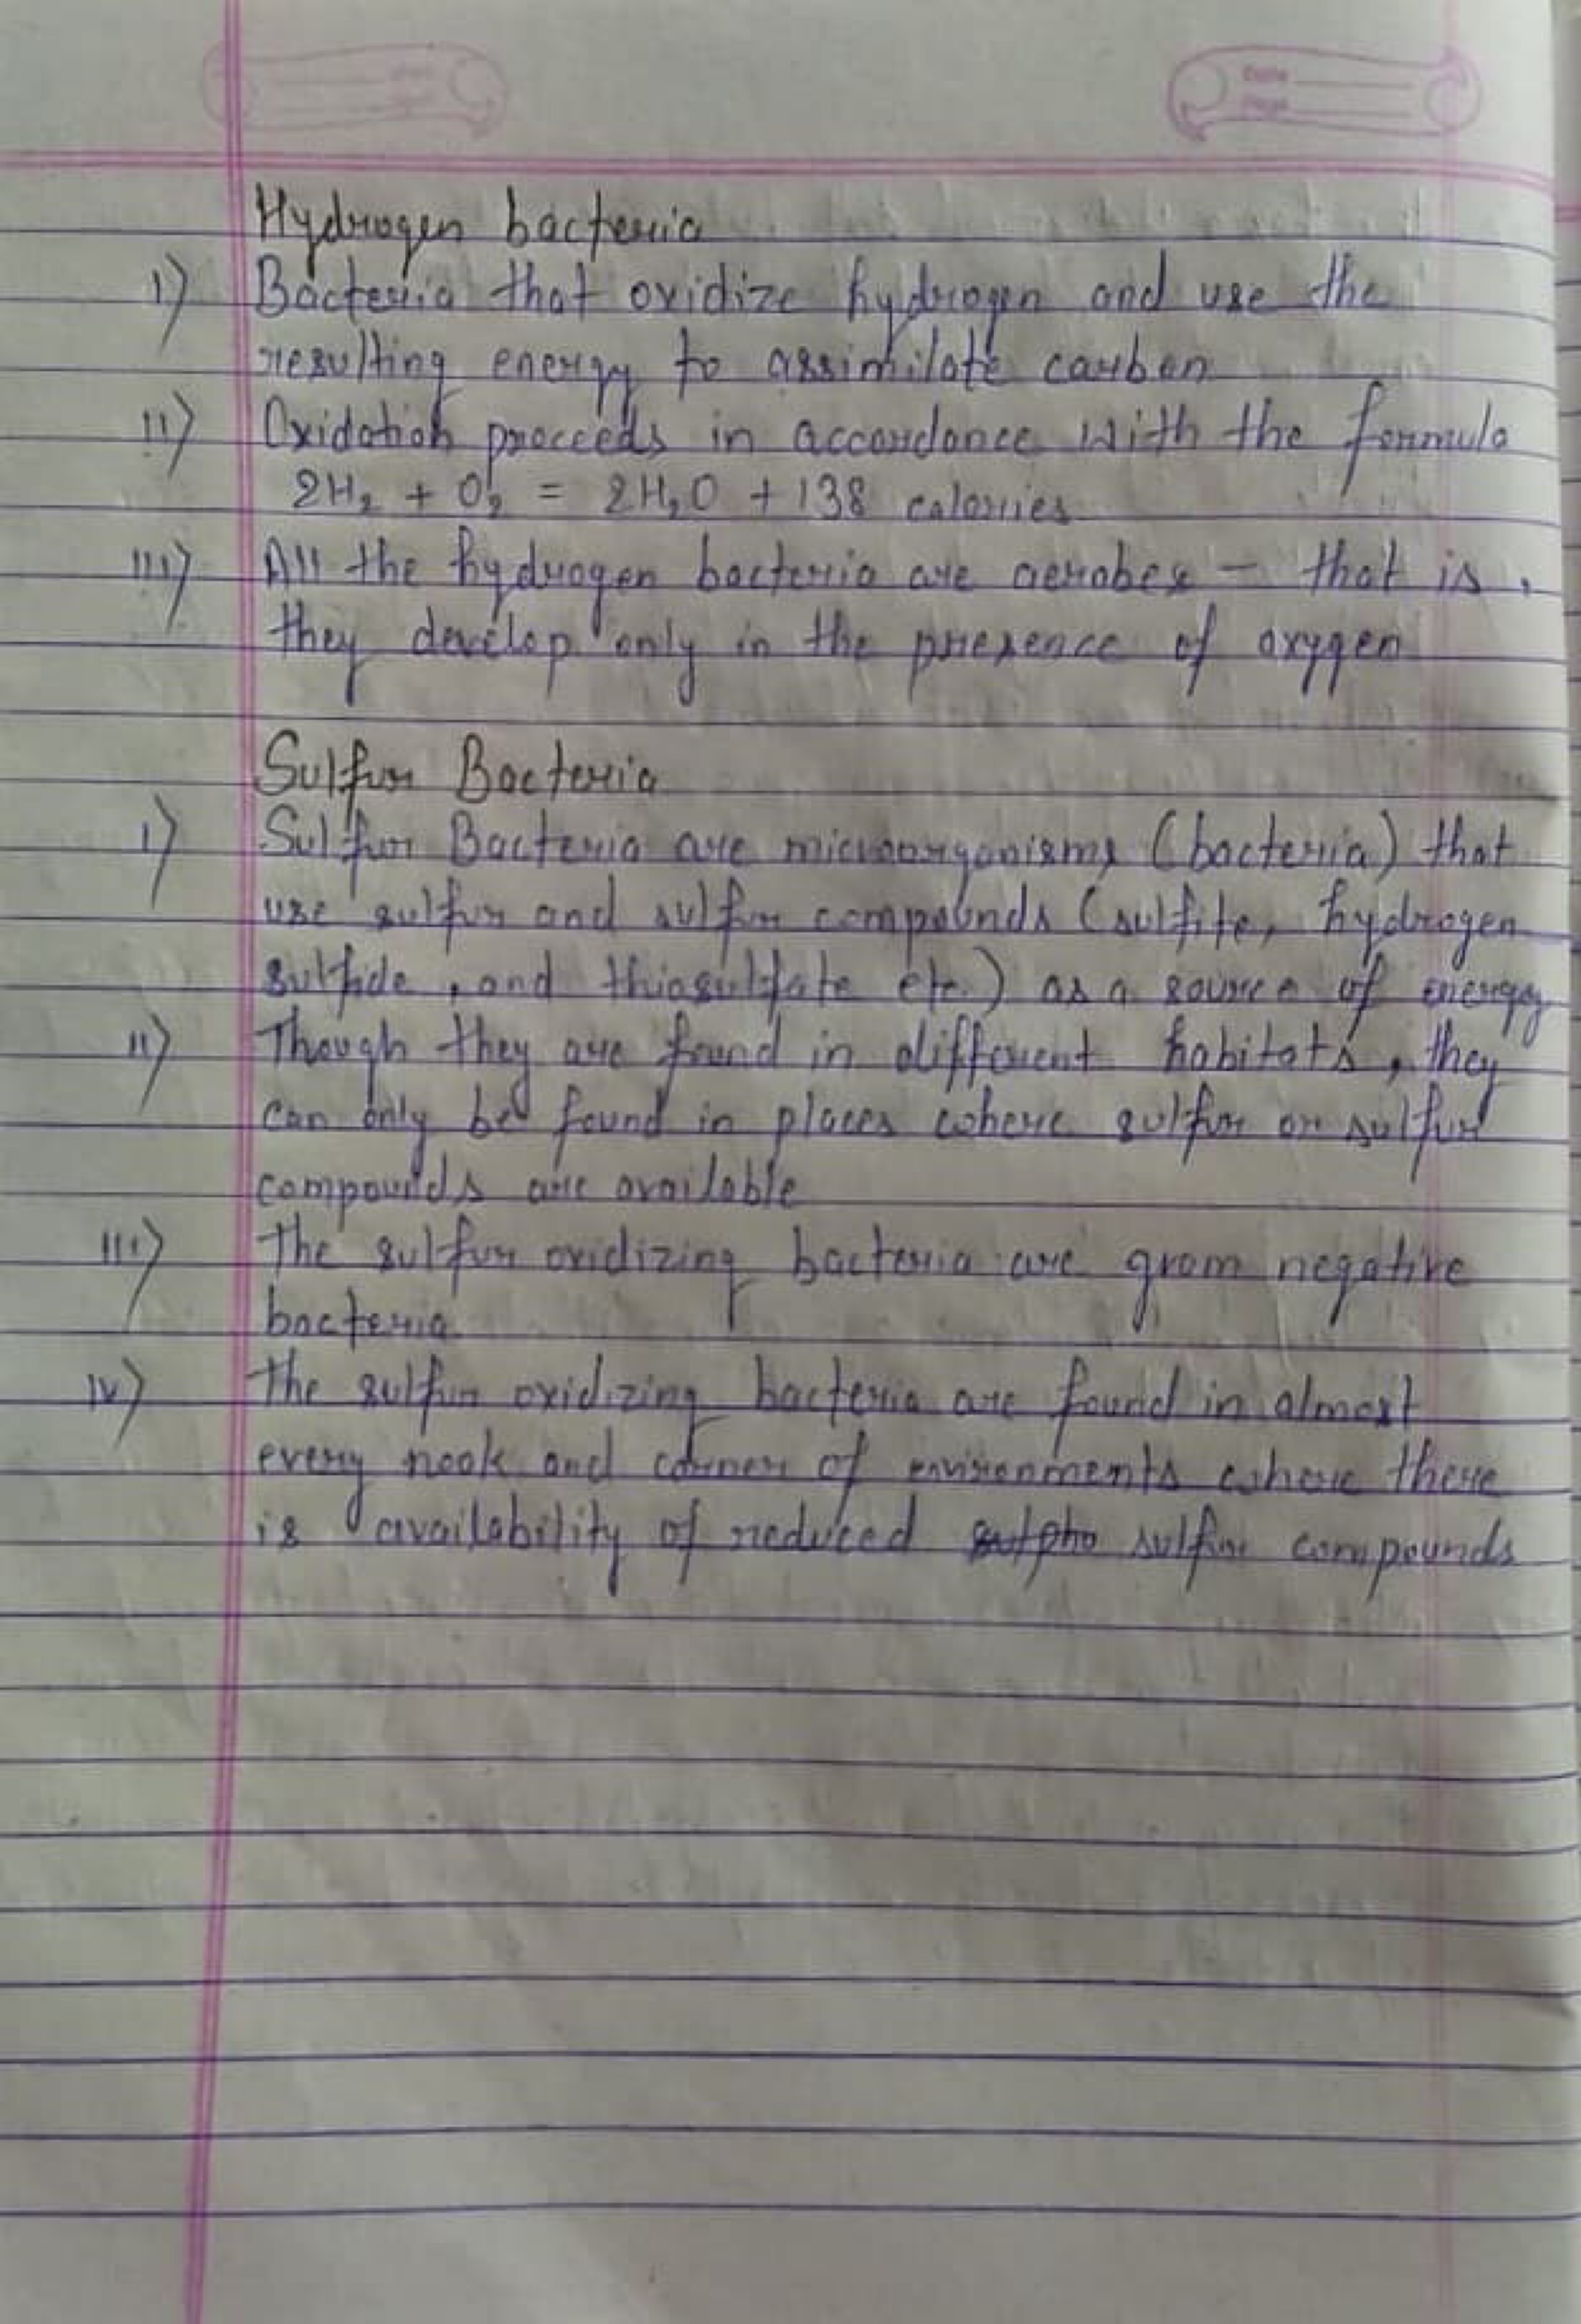 Date
Page
Hydrogen bacteria
i) Bacteria that oxidize hydrogen and use the
resulting energy to assimilate carbon
ii) Oxidation proceeds in accordance with the formula
2H₂ + O₂ = 2H₂O + 138 calories
iii) All the hydrogen bacteria are aerobes - that is,
they develop only in the presence of oxygen
Sulfur Bacteria
i) Sulfur Bacteria are microorganisms (bacteria) that
use sulfur and sulfur compounds (sulfite, hydrogen
sulfide, and thiosulfate etc.) as a source of energy
ii) Though they are found in different habitats, they
can only be found in places where sulfur or sulfur
compounds are available
iii) The sulfur oxidizing bacteria are gram negative
bacteria
iv) The sulfur oxidizing bacteria are found in almost
every nook and corner of environments where there
is availability of reduced sulpho sulfur compounds